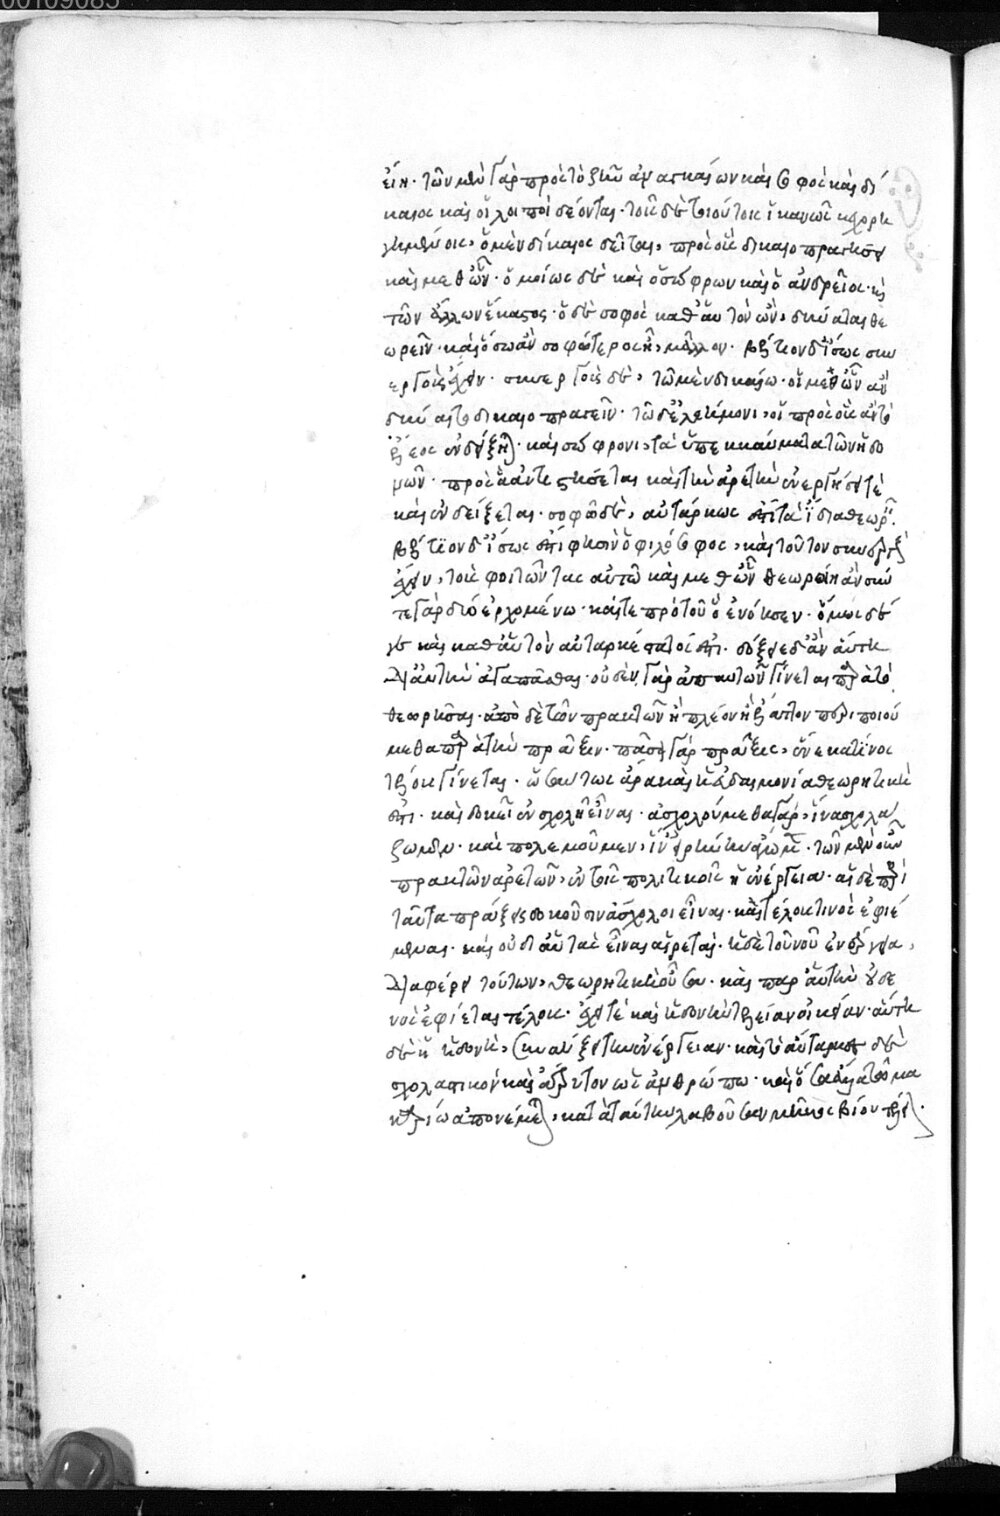 00109085
εἴη· τῶν μὲν γὰρ πρὸς τὸ ζῆν ἀναγκαίων καὶ σοφὸς καὶ δί
καιος καὶ οἱ λοιποὶ δέονται· τοῖς δὲ τοιούτοις ἱκανῶς κεχορη
γημένοις, ὁ μὲν δίκαιος δεῖται, πρὸς οὓς δικαιοπραγήσει
καὶ μεθ' ὧν· ὁμοίως δὲ καὶ ὁ σώφρων καὶ ὁ ἀνδρεῖος· καὶ
τῶν ἄλλων ἕκαστος· ὁ δὲ σοφὸς καθ' αὑτὸν ὢν, δύναται θε
ωρεῖν· καὶ ὅσω ἂν σοφώτερος ᾖ, μᾶλλον· βέλτιον δ' ἴσως συν
εργοὺς ἔχειν· συνεργοὺς δὲ, τῶ μὲν δικαίω· οἱ μεθ' ὧν ἂν
δύναιτο δικαιοπραγεῖν· τῶ δ' ἐλεήμονι, οἱ πρὸς οὓς ἂν τὸ
ἔλεος ἐνδείξηται· καὶ σώφρονι, τὰ ὑπεκκαύματα τῶν ἡδο
νῶν· πρὸς ἃ ἀντιστήσεται καὶ τὴν ἀρετὴν ἐνεργήσει τε
καὶ ἐνδείξεται· σοφῶ δὲ, αὐτάρκως ἐπὶ τὰ ἴδια θεωρεῖν·
βέλτιον δ' ἴσως ἐπί φησιν ὁ φιλόσοφος, καὶ τοῦτον συνεργοὺς
ἔχειν, τοὺς φοιτῶντας αὐτῶ καὶ μεθ' ὧν θεωροίη ἂν σύν
τε γὰρ δύο ἐρχομένω· καί τε πρὸ τοῦ ὃ ἐνόησεν· ὅμως δέ
γε καὶ καθ' αὑτὸν αὐταρκέστατός ἐστι· δόξειε δ' ἂν αὕτη
δι' αὑτὴν ἀγαπᾶσθαι· οὐδὲν γὰρ ἀπ' αὐτῶν γίνεται παρὰ τὸ
θεωρῆσαι· ἀπὸ δὲ τῶν πρακτῶν ἢ πλέον ἢ ἔλαττον περιποιού
μεθα παρὰ τὴν πρᾶξιν· πᾶσα γὰρ πρᾶξις, ἕνεκα τινος
τέλους γίνεται· ὥστε οὕτως ἄρα καὶ ἡ εὐδαιμονία θεωρητικὴ
ἐστι· καὶ δοκεῖ ἐν σχολῇ εἶναι· ἀσχολούμεθα γὰρ, ἵνα σχολά
ζωμεν· καὶ πολεμοῦμεν, ἵν' εἰρήνην ἄγωμεν· τῶν μὲν οὖν
πρακτῶν ἀρετῶν, ἐν τοῖς πολιτικοῖς ἡ ἐνέργεια· αἱ δὲ περὶ
ταῦτα πράξεις δοκοῦσιν ἄσχολοι εἶναι· καὶ τέλους τινὸς ἐφιέ
μεναι· καὶ οὐ δι' αὑτὰς εἶναι αἱρεταὶ· ἡ δὲ τοῦ νοῦ ἐνέργεια,
διαφέρει τούτων, θεωρητικὴ οὖσα· καὶ παρ' αὑτὴν οὐδε
νὸς ἐφίεται τέλους· ἔχει τὲ καὶ ἡδονὴν τελείαν οἰκείαν· αὕτη
δὲ ἡ ἡδονὴ, συναύξει τὴν ἐνέργειαν· καὶ τὸ αὔταρκες δὲ
σχολαστικὸν καὶ ἄτρυτον ὡς ἀνθρώπω· καὶ ὅσα ἄλλα τῶ μα
καρίω ἀπονέμεται, κατὰ ταύτην λαβοῦσαν μῆκος βίου τέλειον.